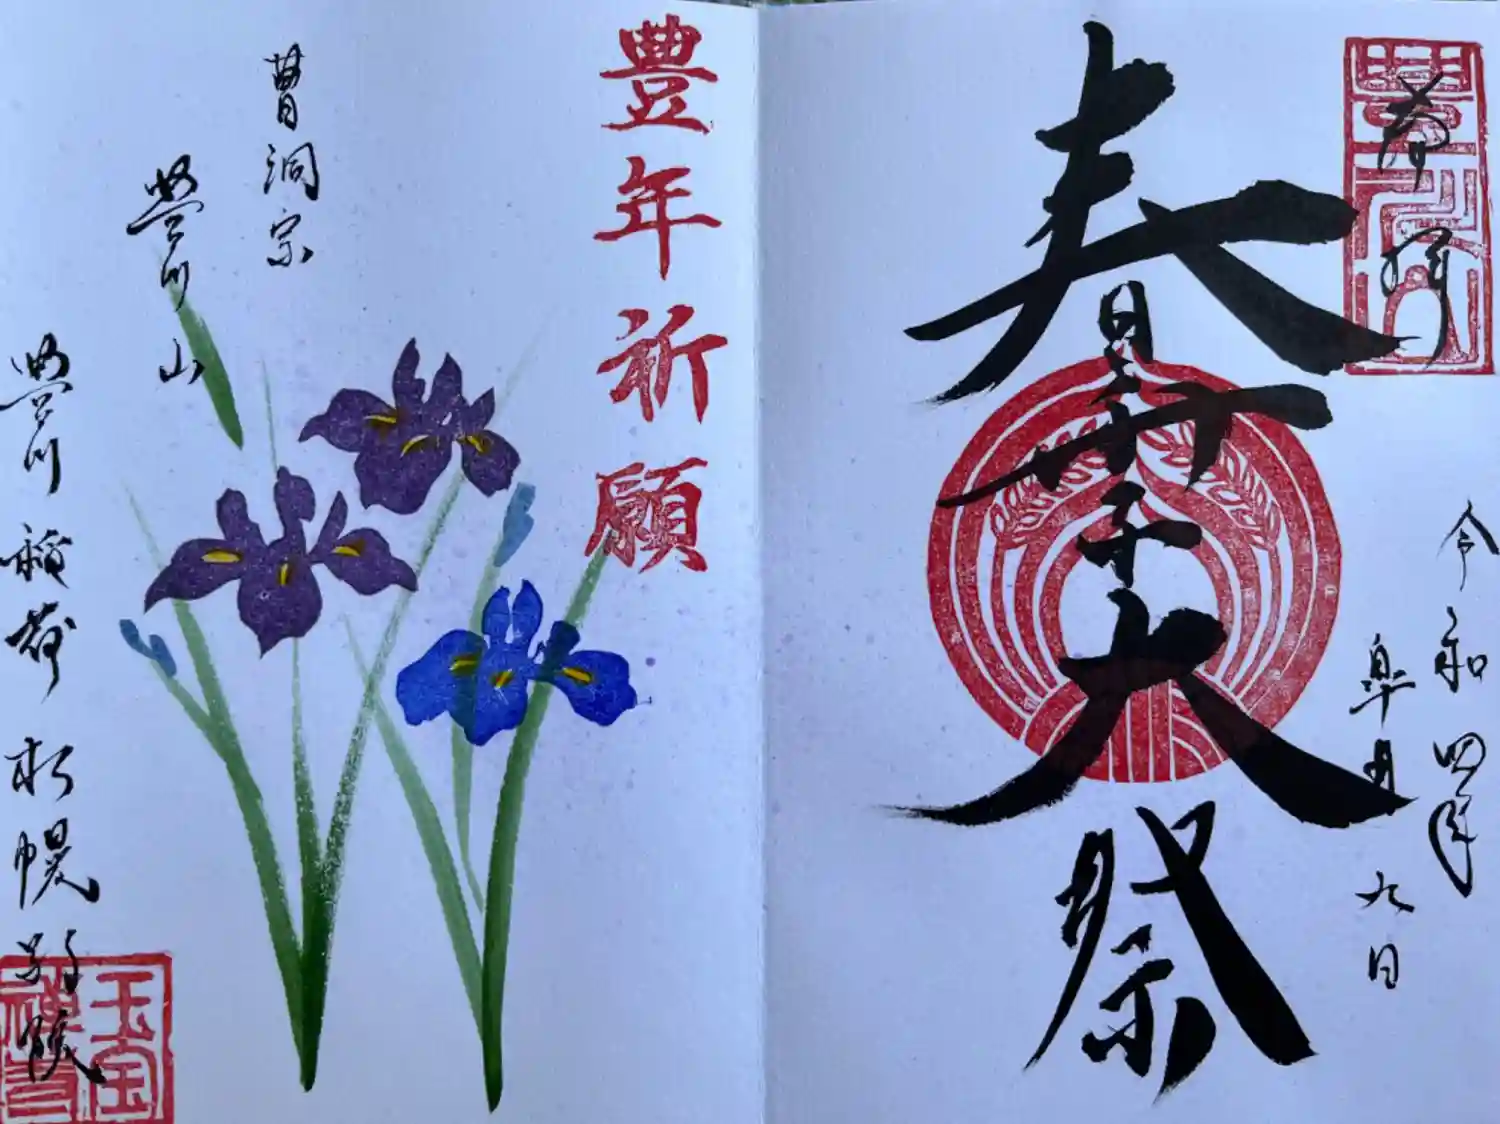 奉拝
令和四年
皐月九日
春季大祭
豊年祈願
曹洞宗
豊川山
豊川稲荷札幌別院
玉宝
禅寺